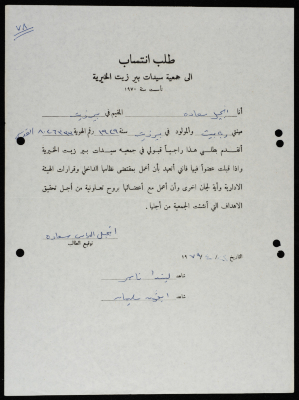 ٧٨
طلب انتساب
الى جمعية سيدات بير زيت الخيرية
تأسست سنة ١٩٧٠
أنا انجيل سعاده المقيم في بيرزيت
مهنتي ربة بيت والمولود في بيرزيت سنة ١٩٤٩ رقم الهوية
أتقدم بطلبي هذا راجياً قبولي في جمعية سيدات بير زيت الخيرية
واذا قبلت عضواً فيها فاني أتعهد بأن أعمل بمقتضى نظامها الداخلي وقرارات الهيئة
الادارية وأية لجان اخرى وأن أعمل مع أعضائها بروح تعاونية من أجل تحقيق
الاهداف التي أنشئت الجمعية من أجلها .
انجيل الياس سعاده
توقيع الطالب
التاريخ ١٩٧٩
شاهد ليندا ناصر
شاهد